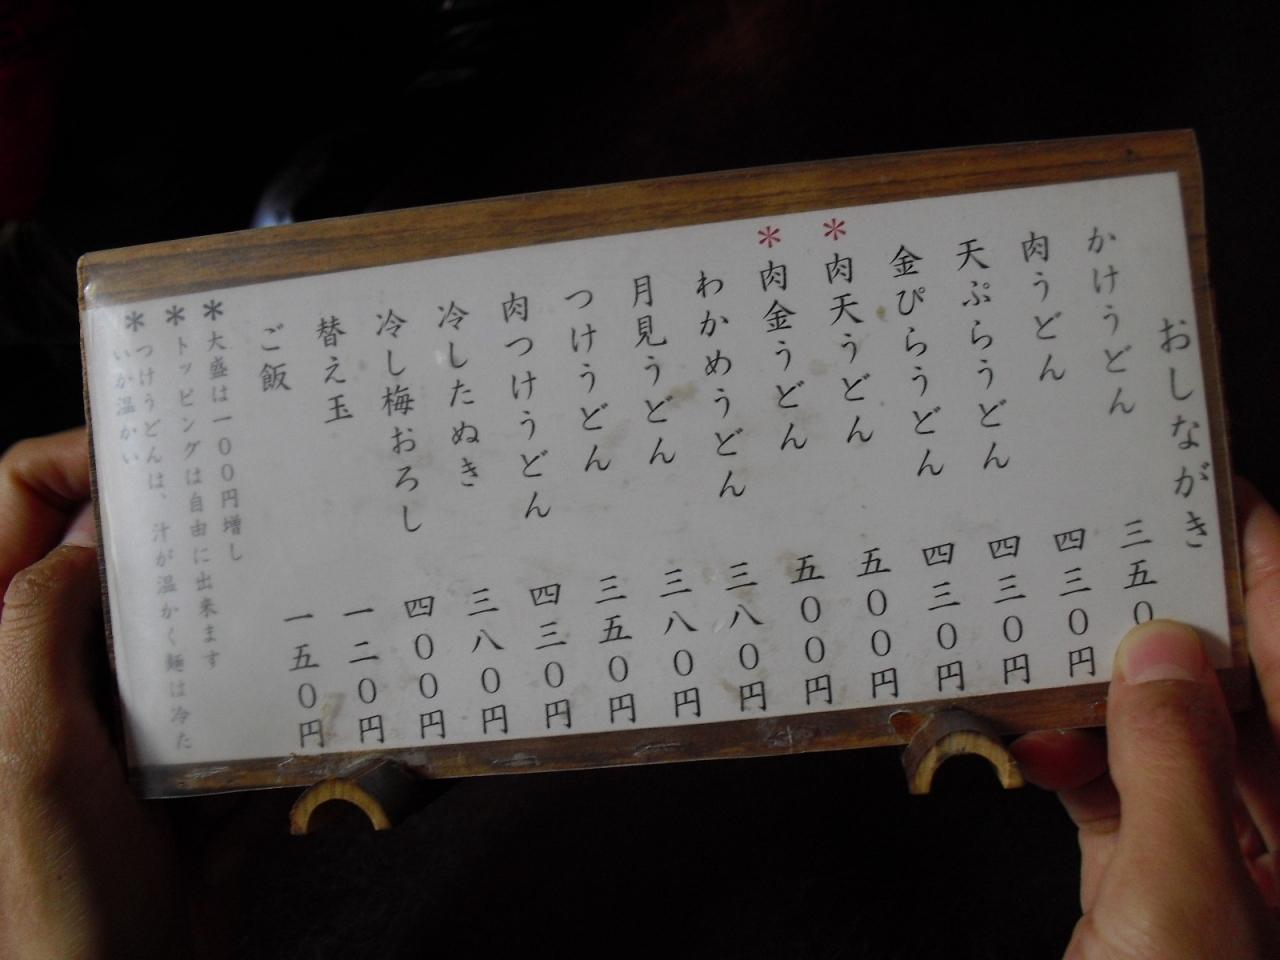 おしながき
かけうどん 三五0
肉うどん 四三0円
天ぷらうどん 四三0円
金ぴらうどん 四三0円
*肉天うどん 五00円
*肉金うどん 五00円
わかめうどん 三八0円
月見うどん 三八0円
つけうどん 三五0円
肉つけうどん 四三0円
冷したぬき 三八0円
冷し梅おろし 四00円
替え玉 一二0円
ご飯 一五0円
*大盛は一00円増し
*トッピングは自由に出来ます
*つけうどんは、汁が温かく麺は冷た
いか温かい